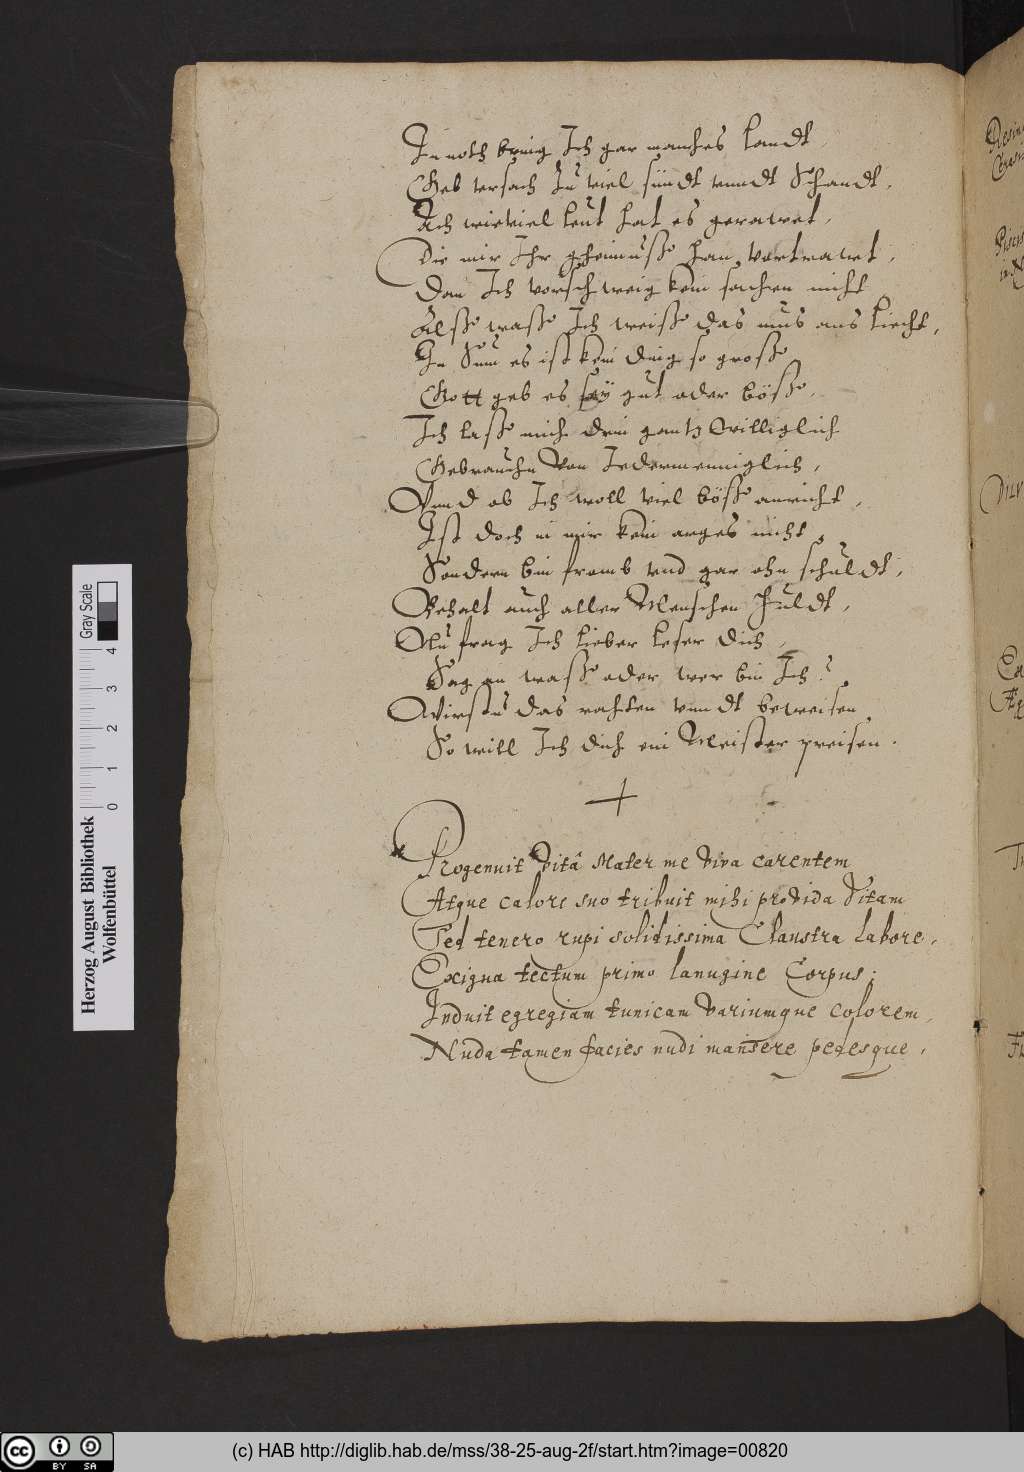 In noth bring Ich gar manches Landt,
Geb vrsach Zu viel sündt vnndt Schandt,
Ach wieviel leut hat es gerawet,
Die mir Ihr gheimnusse han vertrawet,
Dan Ich verschweig kein sachen nicht
Alsse wasse Ich weisse das mus ans Liecht,
In Sum es ist kein ding so grosse
Gott geb es sey gut oder bösse,
Ich lasse mich drin gantz Willighlich
Gebrauchn Von Iedermenniglich,
Vnnd ob Ich woll viel bösse anricht,
Ist doch in mir kein arges nicht,
Sondern bin fromb vnd gar ohn schuldt,
Behalt auch aller Menschen Huldt,
Nu frag Ich lieber leser dich,
Sag an wasse oder wer bin Ich?
Wirstu das rahten vnndt beweisen,
So will Ich dich ein Meister preisen.
Progenuit Vitâ Mater me Viva carentem
Atque calore suo tribuit mihi provida Vitam
Sed tenero rupi solidissima Claustra labore,
Exigua tectum primo lanugine Corpus;
Induit egregiam tunicam Variumque colorem,
Nuda tamen facies nudi mansere pedesque,
Herzog August Bibliothek
Wolfenbüttel
0 1 2 3 4
Gray Scale
cc BY SA
(c) HAB http://diglib.hab.de/mss/38-25-aug-2f/start.htm?image=00820